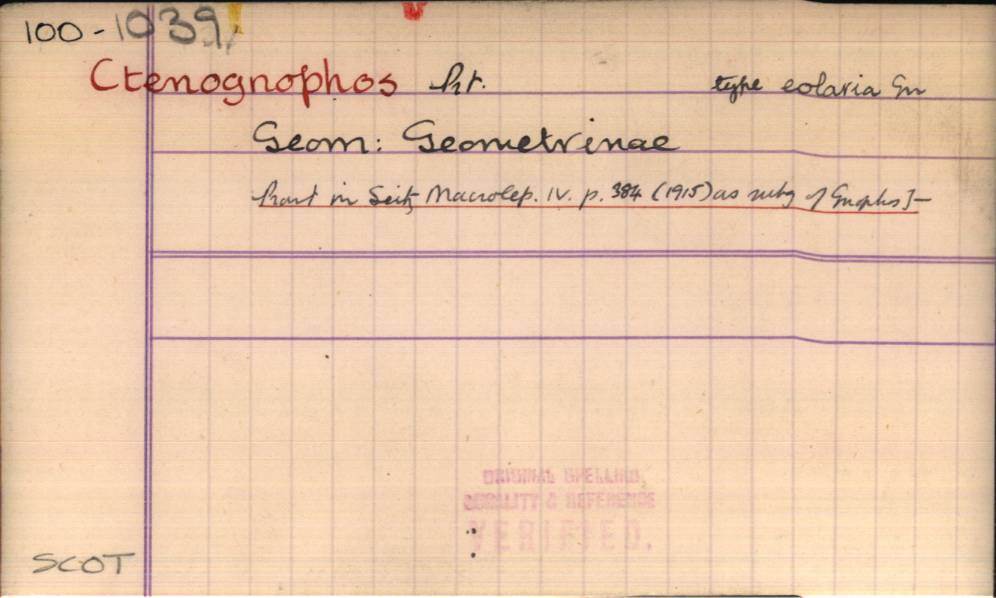 100-1039
Ctenognophos Prt. type eolaria Gn
Geom: Geometrinae
Prout in Seitz Macrolep. IV. p. 384 (1915) as subg of Gnophos]—
ORIGINAL SPELLING,
& REFERENCE
VERIFIED.
SCOT